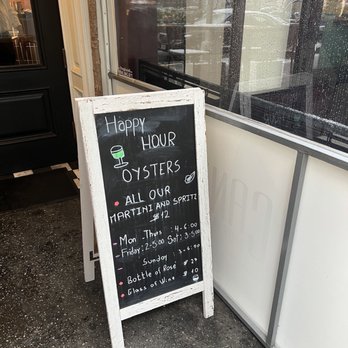 Happy
HOUR
OYSTERS
ALL OUR
MARTINI AND SPRITZ
$12
- Mon - Thus : 4-6:00
- Friday: 2-5:00 Sat: 3-5:00
- Sunday : 3-6:00
Bottle of Rosé $
Glass of Wine $10